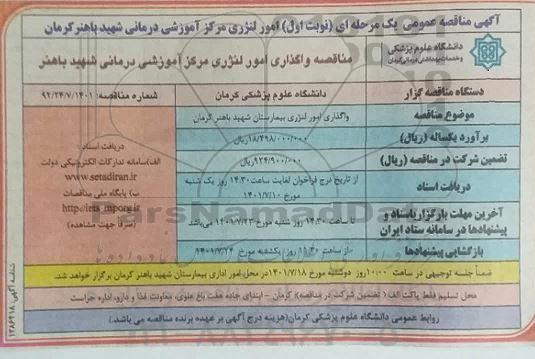 آگهی مناقصه عمومی یک مرحله ای (نوبت اول) امور لنژری مرکز آموزشی درمانی شهید باهنر کرمان
دانشگاه علوم پزشکی
و خدمات بهداشتی درمانی کرمان
مناقصه واگذاری امور لنژری مرکز آموزشی درمانی شهید باهنر
دستگاه مناقصه گزار
دانشگاه علوم پزشکی کرمان
شماره مناقصه: ۹۲/۲۴/۷/۱۴۰۱
موضوع مناقصه
واگذاری امور لنژری بیمارستان شهید باهنر کرمان
برآورد یکساله (ریال)
۱۸/۴۹۸/۰۰۰/۰۰۰ریال
تضمین شرکت در مناقصه (ریال)
۹۲۴/۹۰۰/۰۰۰ریال
دریافت اسناد
از تاریخ درج فراخوان لغایت ساعت ۱۴:۳۰ روز یک شنبه
مورخ ۱۴۰۱/۷/۱۰
آخرین مهلت بارگزاری اسناد و
پیشنهادها در سامانه ستاد ایران
تا ساعت ۱۴:۳۰ روز شنبه مورخ ۱۴۰۱/۷/۲۳ می‌باشد
بازگشایی پیشنهادها
از ساعت روز یکشنبه مورخ ۱۴۰۱/۷/۲۴
دریافت اسناد:
الف)سامانه تدارکات الکترونیکی دولت
www.setadiran.ir
ب) پایگاه ملی مناقصات
http://iets.mporg.ir
(صرفا جهت مشاهده)
ضمناً جلسه توجیهی در ساعت ۱۰:۰۰ روز دوشنبه مورخ ۱۴۰۱/۷/۱۸ در محل امور اداری بیمارستان شهید باهنر کرمان برگزار خواهد شد.
محل تسلیم فقط پاکت الف ( تضمین شرکت در مناقصه): کرمان - ابتدای جاده هفت باغ علوی، معاونت غذا و دارو، اداره حراست
روابط عمومی دانشگاه علوم پزشکی کرمان(هزینه درج آگهی بر عهده برنده مناقصه می باشد.)
شناسه آگهی: ۱۳۸۶۹۱۸
ParsNamadData